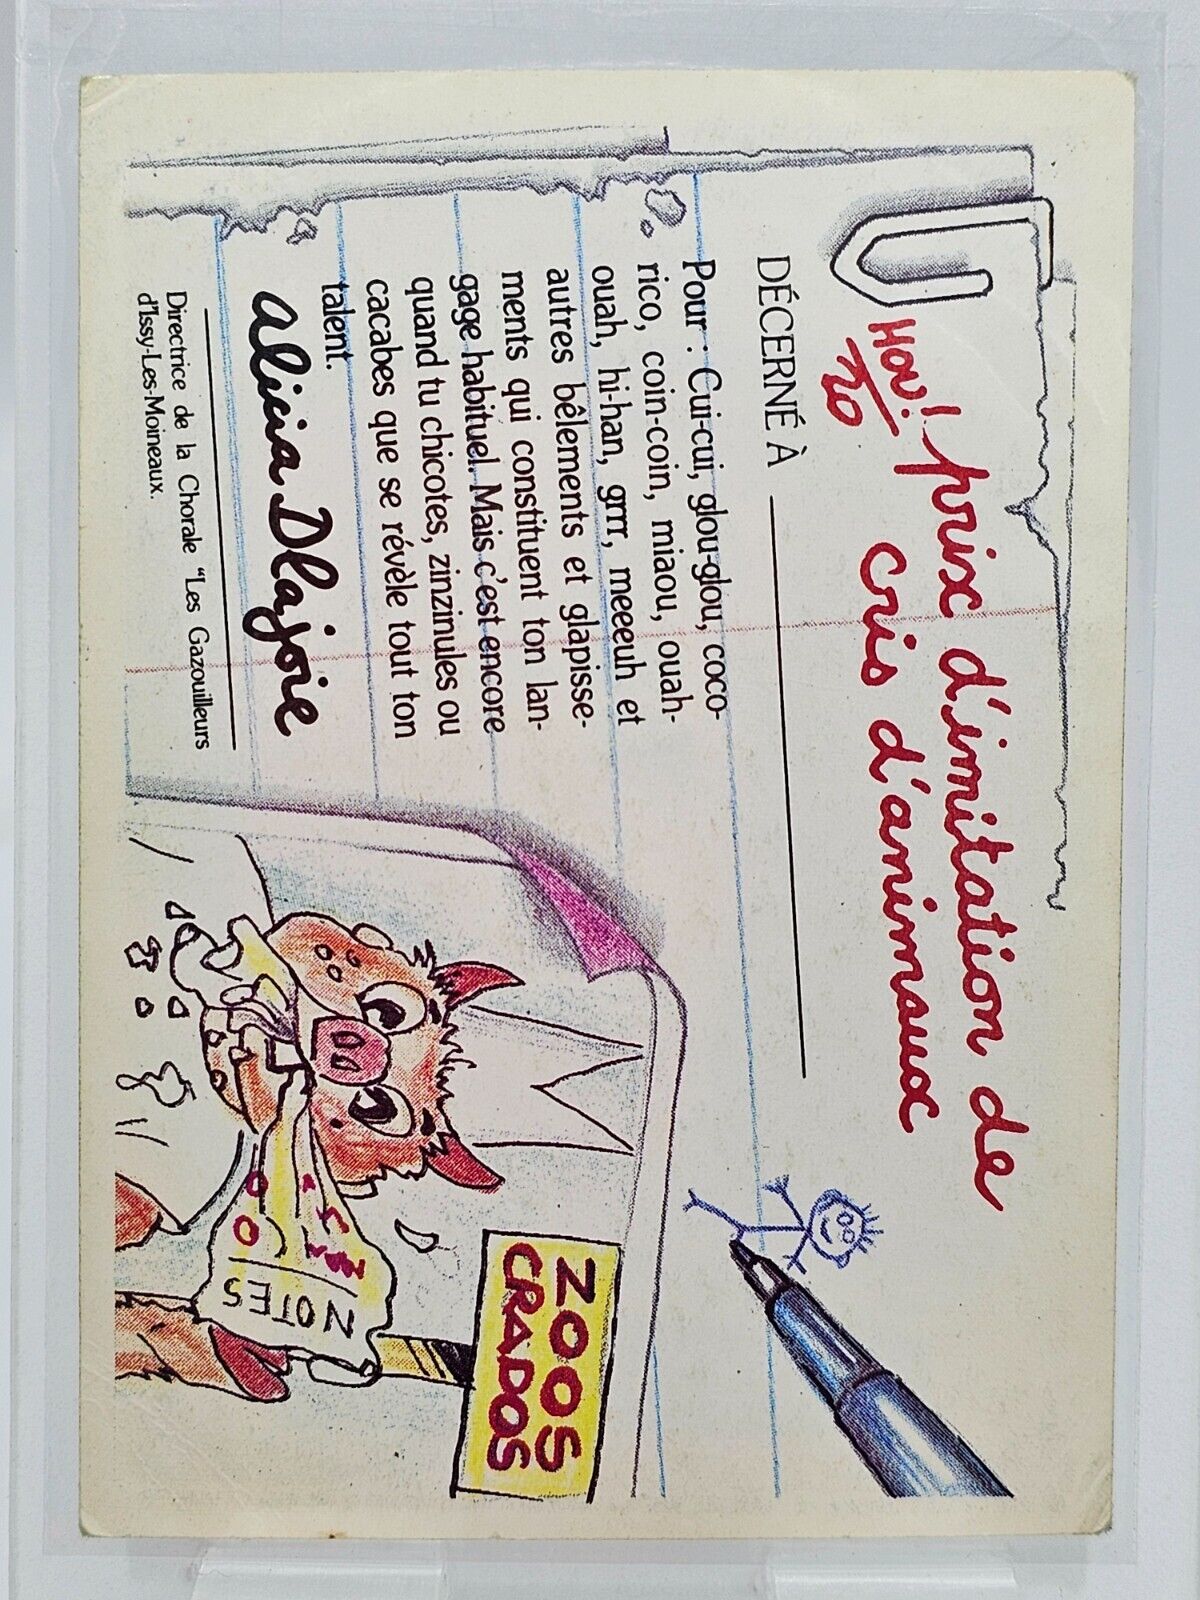 Hou! prix d'imitation de
no cris d'animaux
DÉCERNÉ À
Pour : Cui-cui, glou-glou, coco-
rico, coin-coin, miaou, ouah-
ouah, hi-han, grrr, meeeuh et
autres bêlements et glapisse-
ments qui constituent ton lan-
gage habituel. Mais c'est encore
quand tu chicotes, zinzinules ou
cacabes que se révèle tout ton
talent.
alicia Dlajoie
Directrice de la Chorale "Les Gazouilleurs
d'Issy-Les-Moineaux.
ZOOS
CRADOS
NOTES